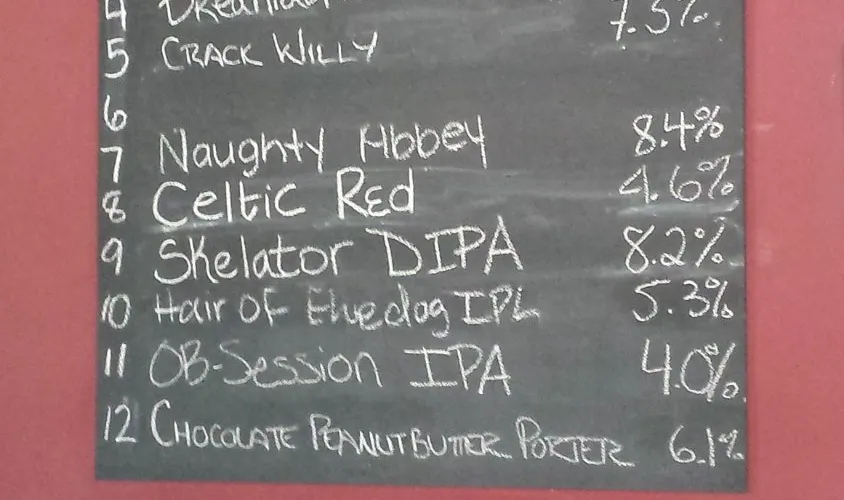 4 7.5%
5 CRACK WILLY
6
7 Naughty Abbey 8.4%
8 Celtic Red 4.6%
9 Skelator DIPA 8.2%
10 Hair OF Eluedog IPL 5.3%
11 OB-Session IPA 4.0%
12 CHOCOLATE PEANUTBUTTER PORTER 6.1%